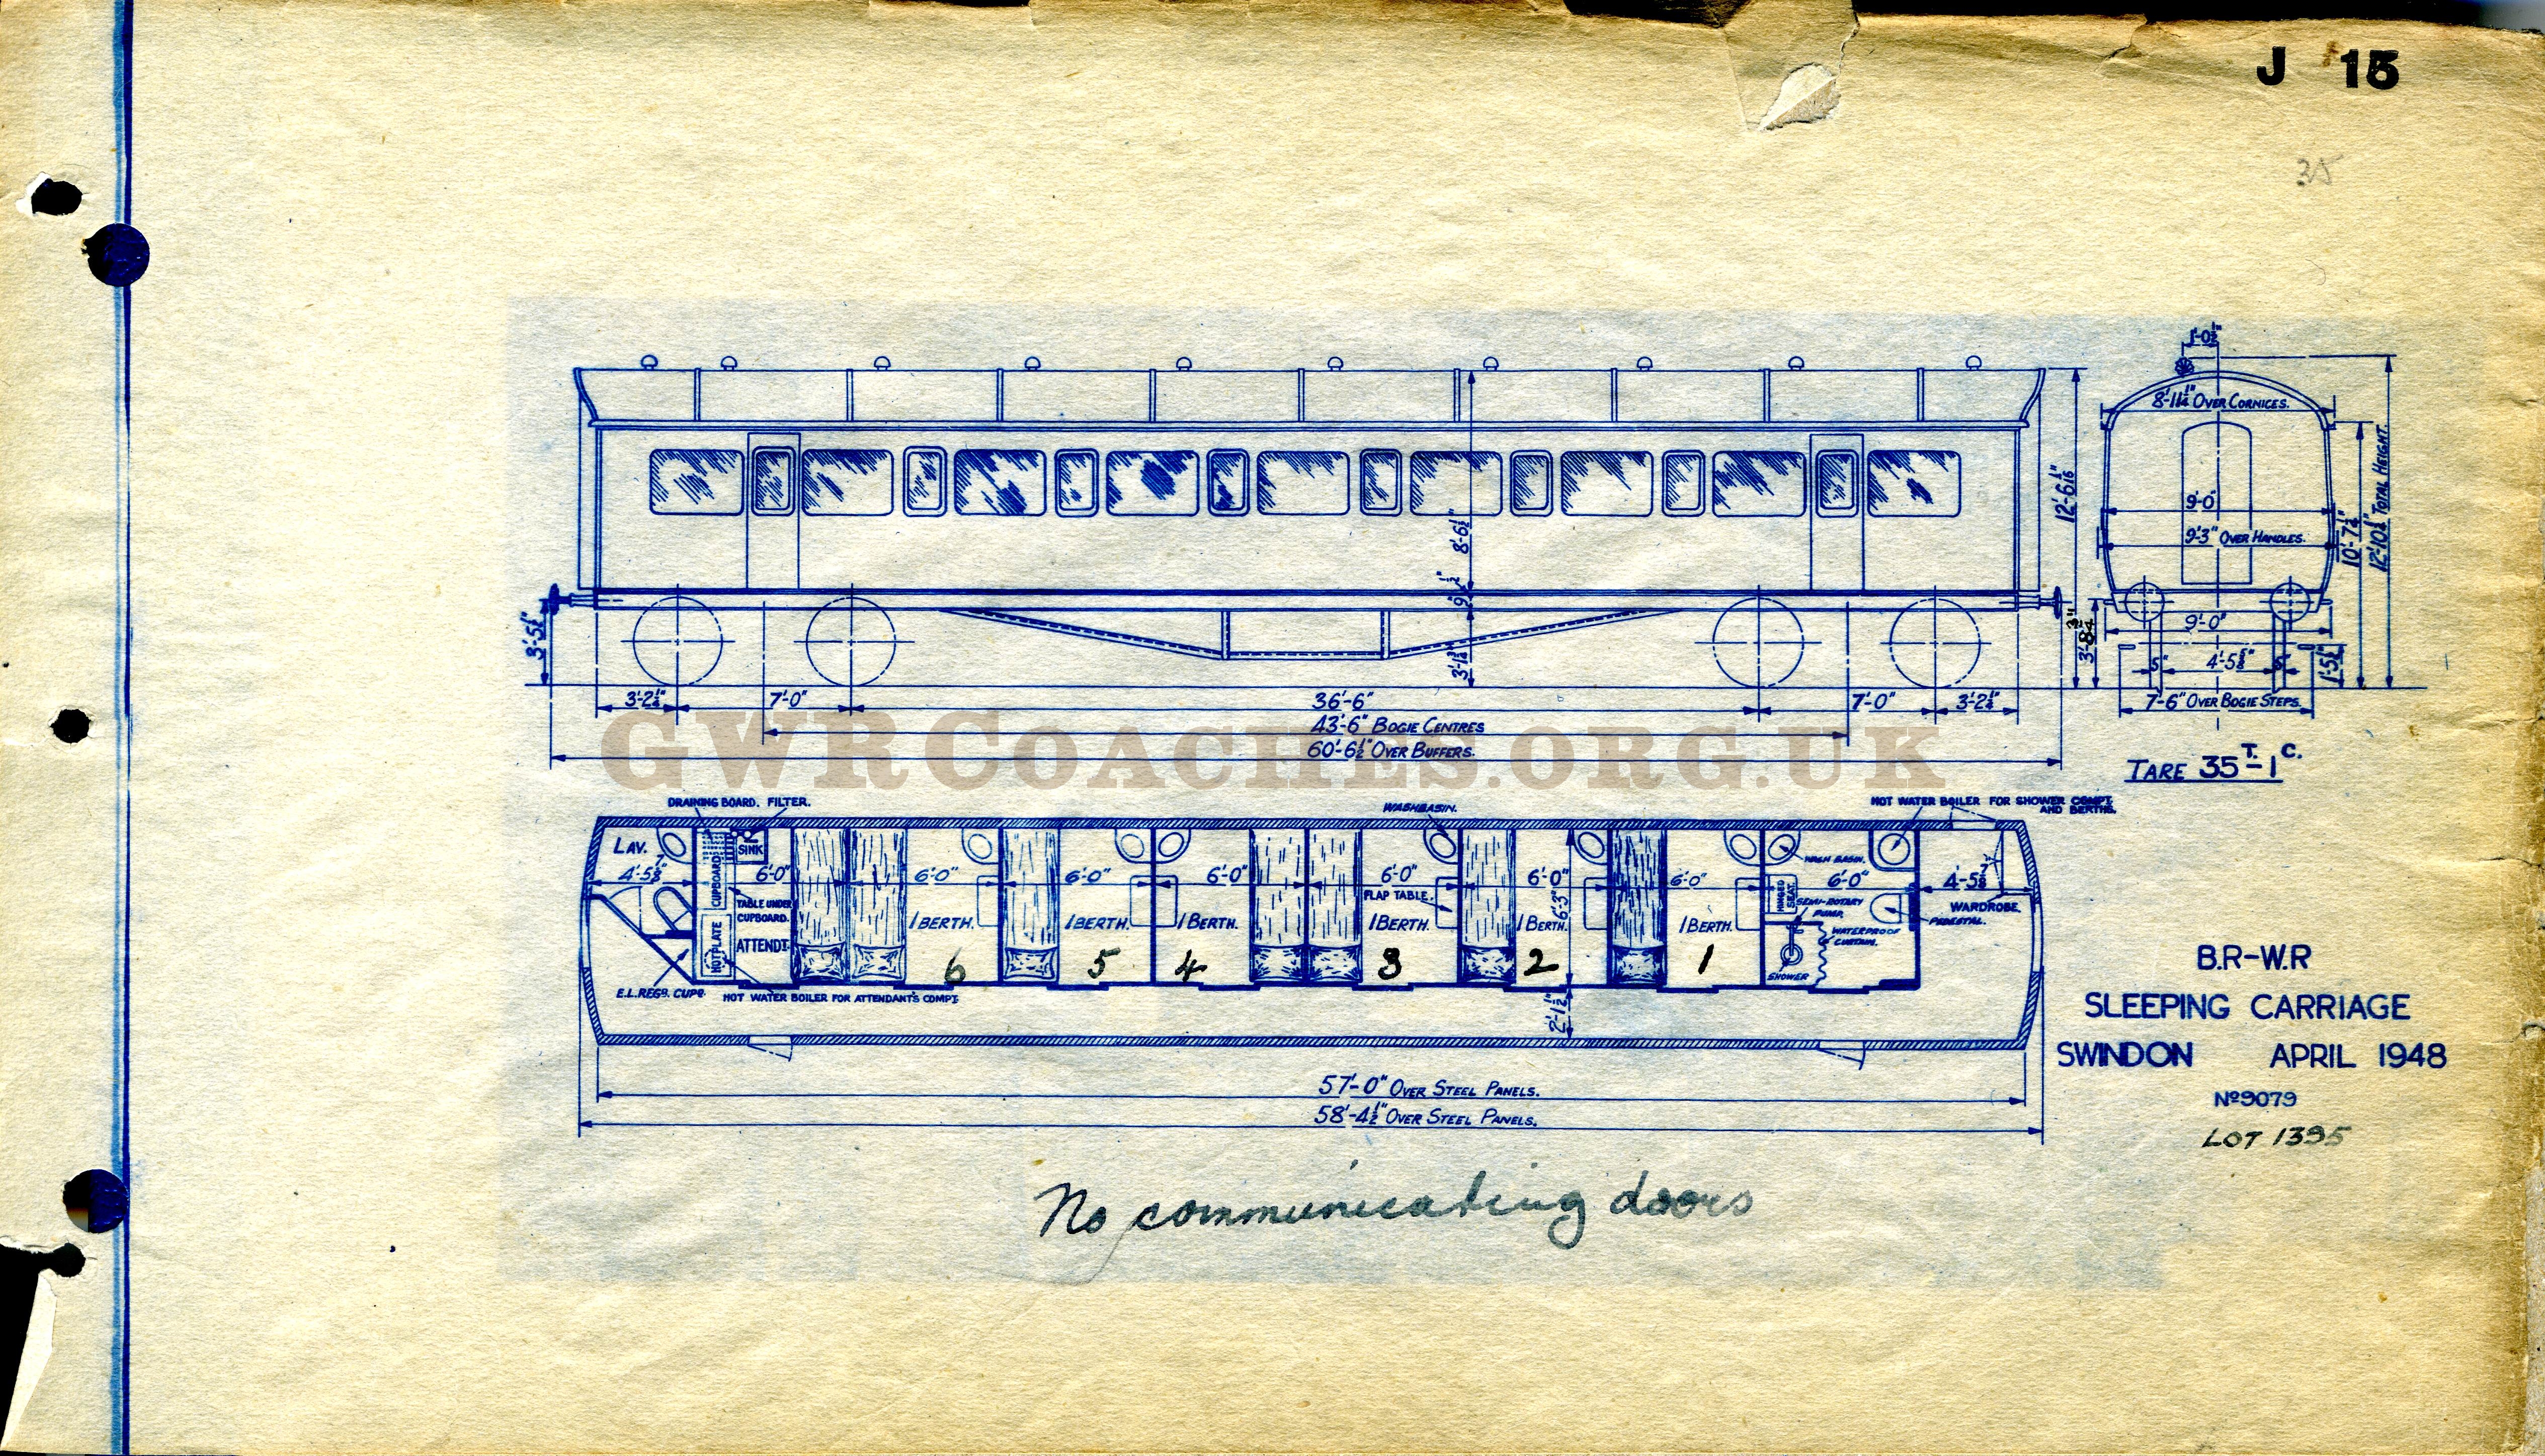 J 15
35
1'-0½"
8'-11¼" OVER CORNICES.
9'-0"
9'-3" OVER HANDLES.
10'-7½"
12'-10¼" TOTAL HEIGHT.
12'-6 1/16"
8'-6½"
9½"
3'-1¾"
3'-5½"
3'-8¾"
9'-0"
5" 4'-5⅝" 5"
1'-5¾"
3'-2¼" 7'-0" 36'-6" 7'-0" 3'-2¼"
7'-6" OVER BOGIE STEPS.
43'-6" BOGIE CENTRES
60'-6½" OVER BUFFERS.
GWRCOACHES.ORG.UK
TARE 35T-1C.
DRAINING BOARD. FILTER.
WASHBASIN.
HOT WATER BOILER FOR SHOWER COMPT.
AND BERTHS.
LAV. SINK
CUPBOARD
WASH BASIN.
4'-5⅞" 6'-0" 6'-0" 6'-0" 6'-0" 6'-0" 6'-0" 6'-0" 6'-0" 4'-5⅞"
FLAP TABLE.
HINGED
SEAT.
TABLE UNDER
CUPBOARD.
SEMI-ROTARY
PUMP.
WARDROBE.
PEDESTAL.
6'-3"
1 BERTH. 1 BERTH. 1 BERTH. 1 BERTH. 1 BERTH. 1 BERTH.
WATERPROOF
CURTAIN.
HOTPLATE
ATTENDT.
6 5 4 3 2 1
SHOWER
E.L.REGR. CUPD.
HOT WATER BOILER FOR ATTENDANTS COMPT.
2'-1½"
57'-0" OVER STEEL PANELS.
58'-4½" OVER STEEL PANELS.
B.R-W.R
SLEEPING CARRIAGE
SWINDON APRIL 1948
Nº9079
LOT 1395
No communicating doors